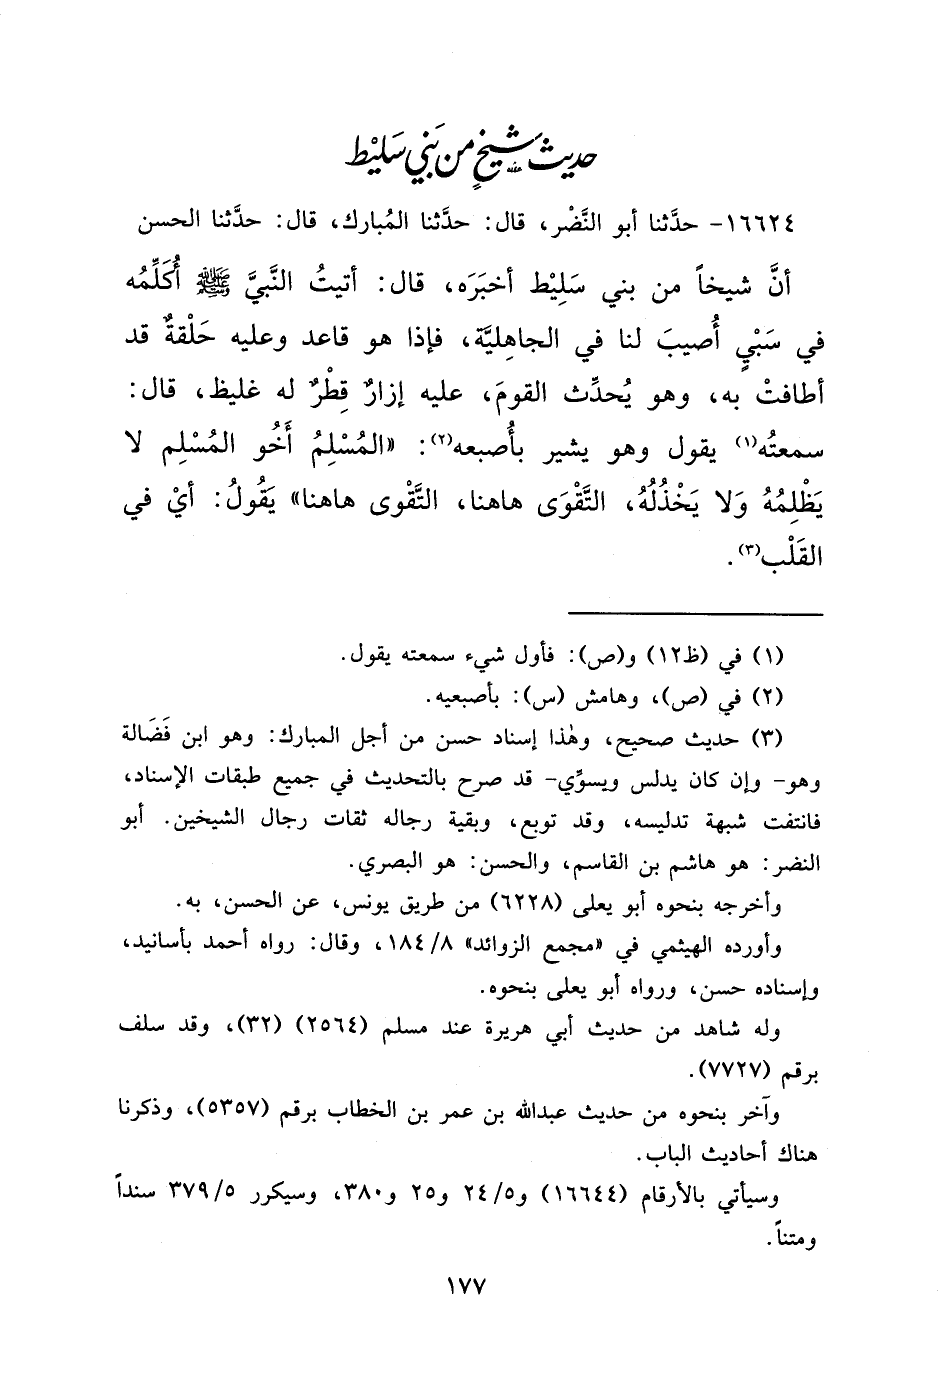 حديث شيخ من بَني سَليْط
١٦٦٢٤- حدَّثنا أبو النَّضْر، قال: حدَّثنا المُبارك، قال: حدَّثنا الحسن
أنَّ شيخاً من بني سَلِيْط أخبَرَه، قال: أتيتُ النَّبيَّ ﷺ أُكَلِّمُه
في سَبْيٍ أُصيبَ لنا في الجاهِليَّة، فإذا هو قاعد وعليه حَلْقةٌ قد
أطافتْ به، وهو يُحدِّث القومَ، عليه إزارٌ قِطْرٌ له غليظ، قال:
سمعتُه(١) يقول وهو يشير بأُصبعه(٢): «المُسْلِمُ أَخُو المُسْلِم لا
يَظْلِمُهُ وَلا يَخْذُلُهُ، التَّقْوَى هاهنا، التَّقْوى هاهنا» يَقُولُ: أيْ في
القَلْب(٣).
(١) في (ظ١٢) و(ص): فأول شيء سمعته يقول.
(٢) في (ص)، وهامش (س): بأصبعيه.
(٣) حديث صحيح، وهٰذا إسناد حسن من أجل المبارك: وهو ابن فَضَالة
وهو- وإن كان يدلس ويسوِّي- قد صرح بالتحديث في جميع طبقات الإسناد،
فانتفت شبهة تدليسه، وقد توبع، وبقية رجاله ثقات رجال الشيخين. أبو
النضر: هو هاشم بن القاسم، والحسن: هو البصري.
وأخرجه بنحوه أبو يعلى (٦٢٢٨) من طريق يونس، عن الحسن، به.
وأورده الهيثمي في «مجمع الزوائد» ١٨٤/٨، وقال: رواه أحمد بأسانيد،
وإسناده حسن، ورواه أبو يعلى بنحوه.
وله شاهد من حديث أبي هريرة عند مسلم (٢٥٦٤) (٣٢)، وقد سلف
برقم (٧٧٢٧).
وآخر بنحوه من حديث عبدالله بن عمر بن الخطاب برقم (٥٣٥٧)، وذكرنا
هناك أحاديث الباب.
وسيأتي بالأرقام (١٦٦٤٤) و٢٤/٥ و٢٥ و٣٨٠، وسيكرر ٣٧٩/٥ سنداً
ومتناً.
١٧٧